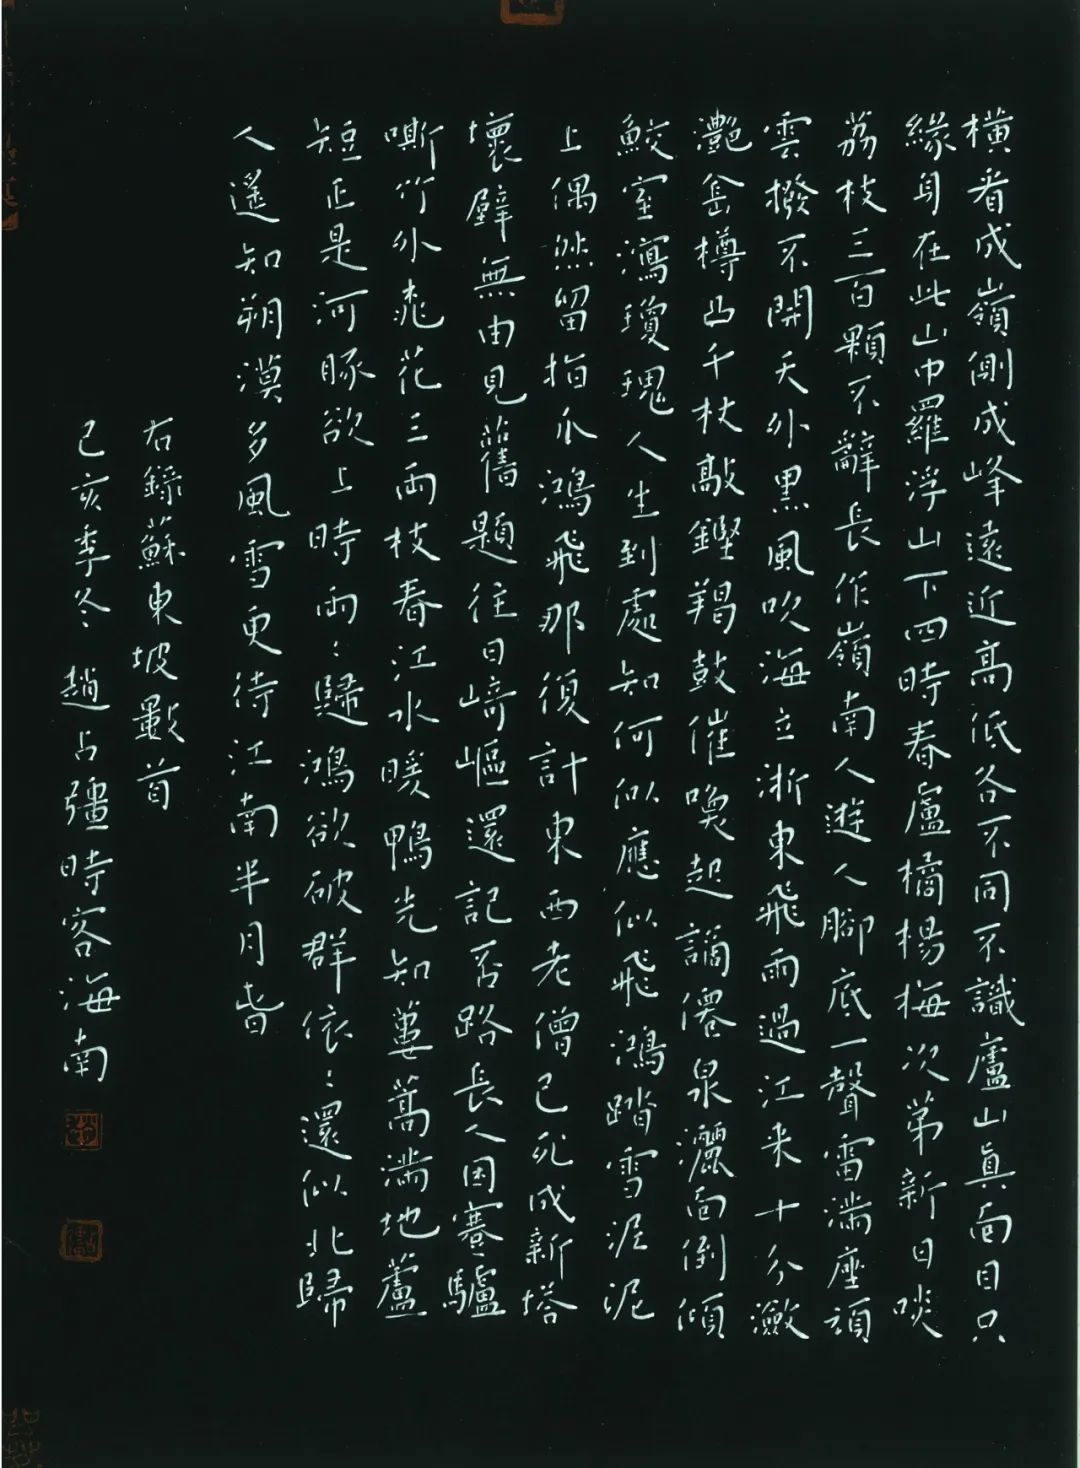 橫看成嶺側成峰遠近高低各不同不識廬山真面目只
緣身在此山中羅浮山下四時春盧橘楊梅次第新日啖
荔枝三百顆不辭長作嶺南人遊人腳底一聲雷滿座頑
雲撥不開天外黑風吹海立浙東飛雨過江来十分瀲
灔金樽凸千杖敲鏗羯鼓催喚起謫僊泉灑面倒傾
鮫室瀉瓊瑰人生到處知何似應似飛鴻踏雪泥泥
上偶然留指爪鴻飛那復計東西老僧已死成新塔
壞壁無由見舊題往日崎嶇還記否路長人困蹇驢
嘶竹外桃花三兩枝春江水暖鴨先知蔞蒿滿地蘆
短正是河豚欲上時兩:歸鴻欲破群依:還似北歸
人遙知朔漠多風雪更待江南半月春
右錄蘇東坡數首
己亥季冬 趙占疆時客海南